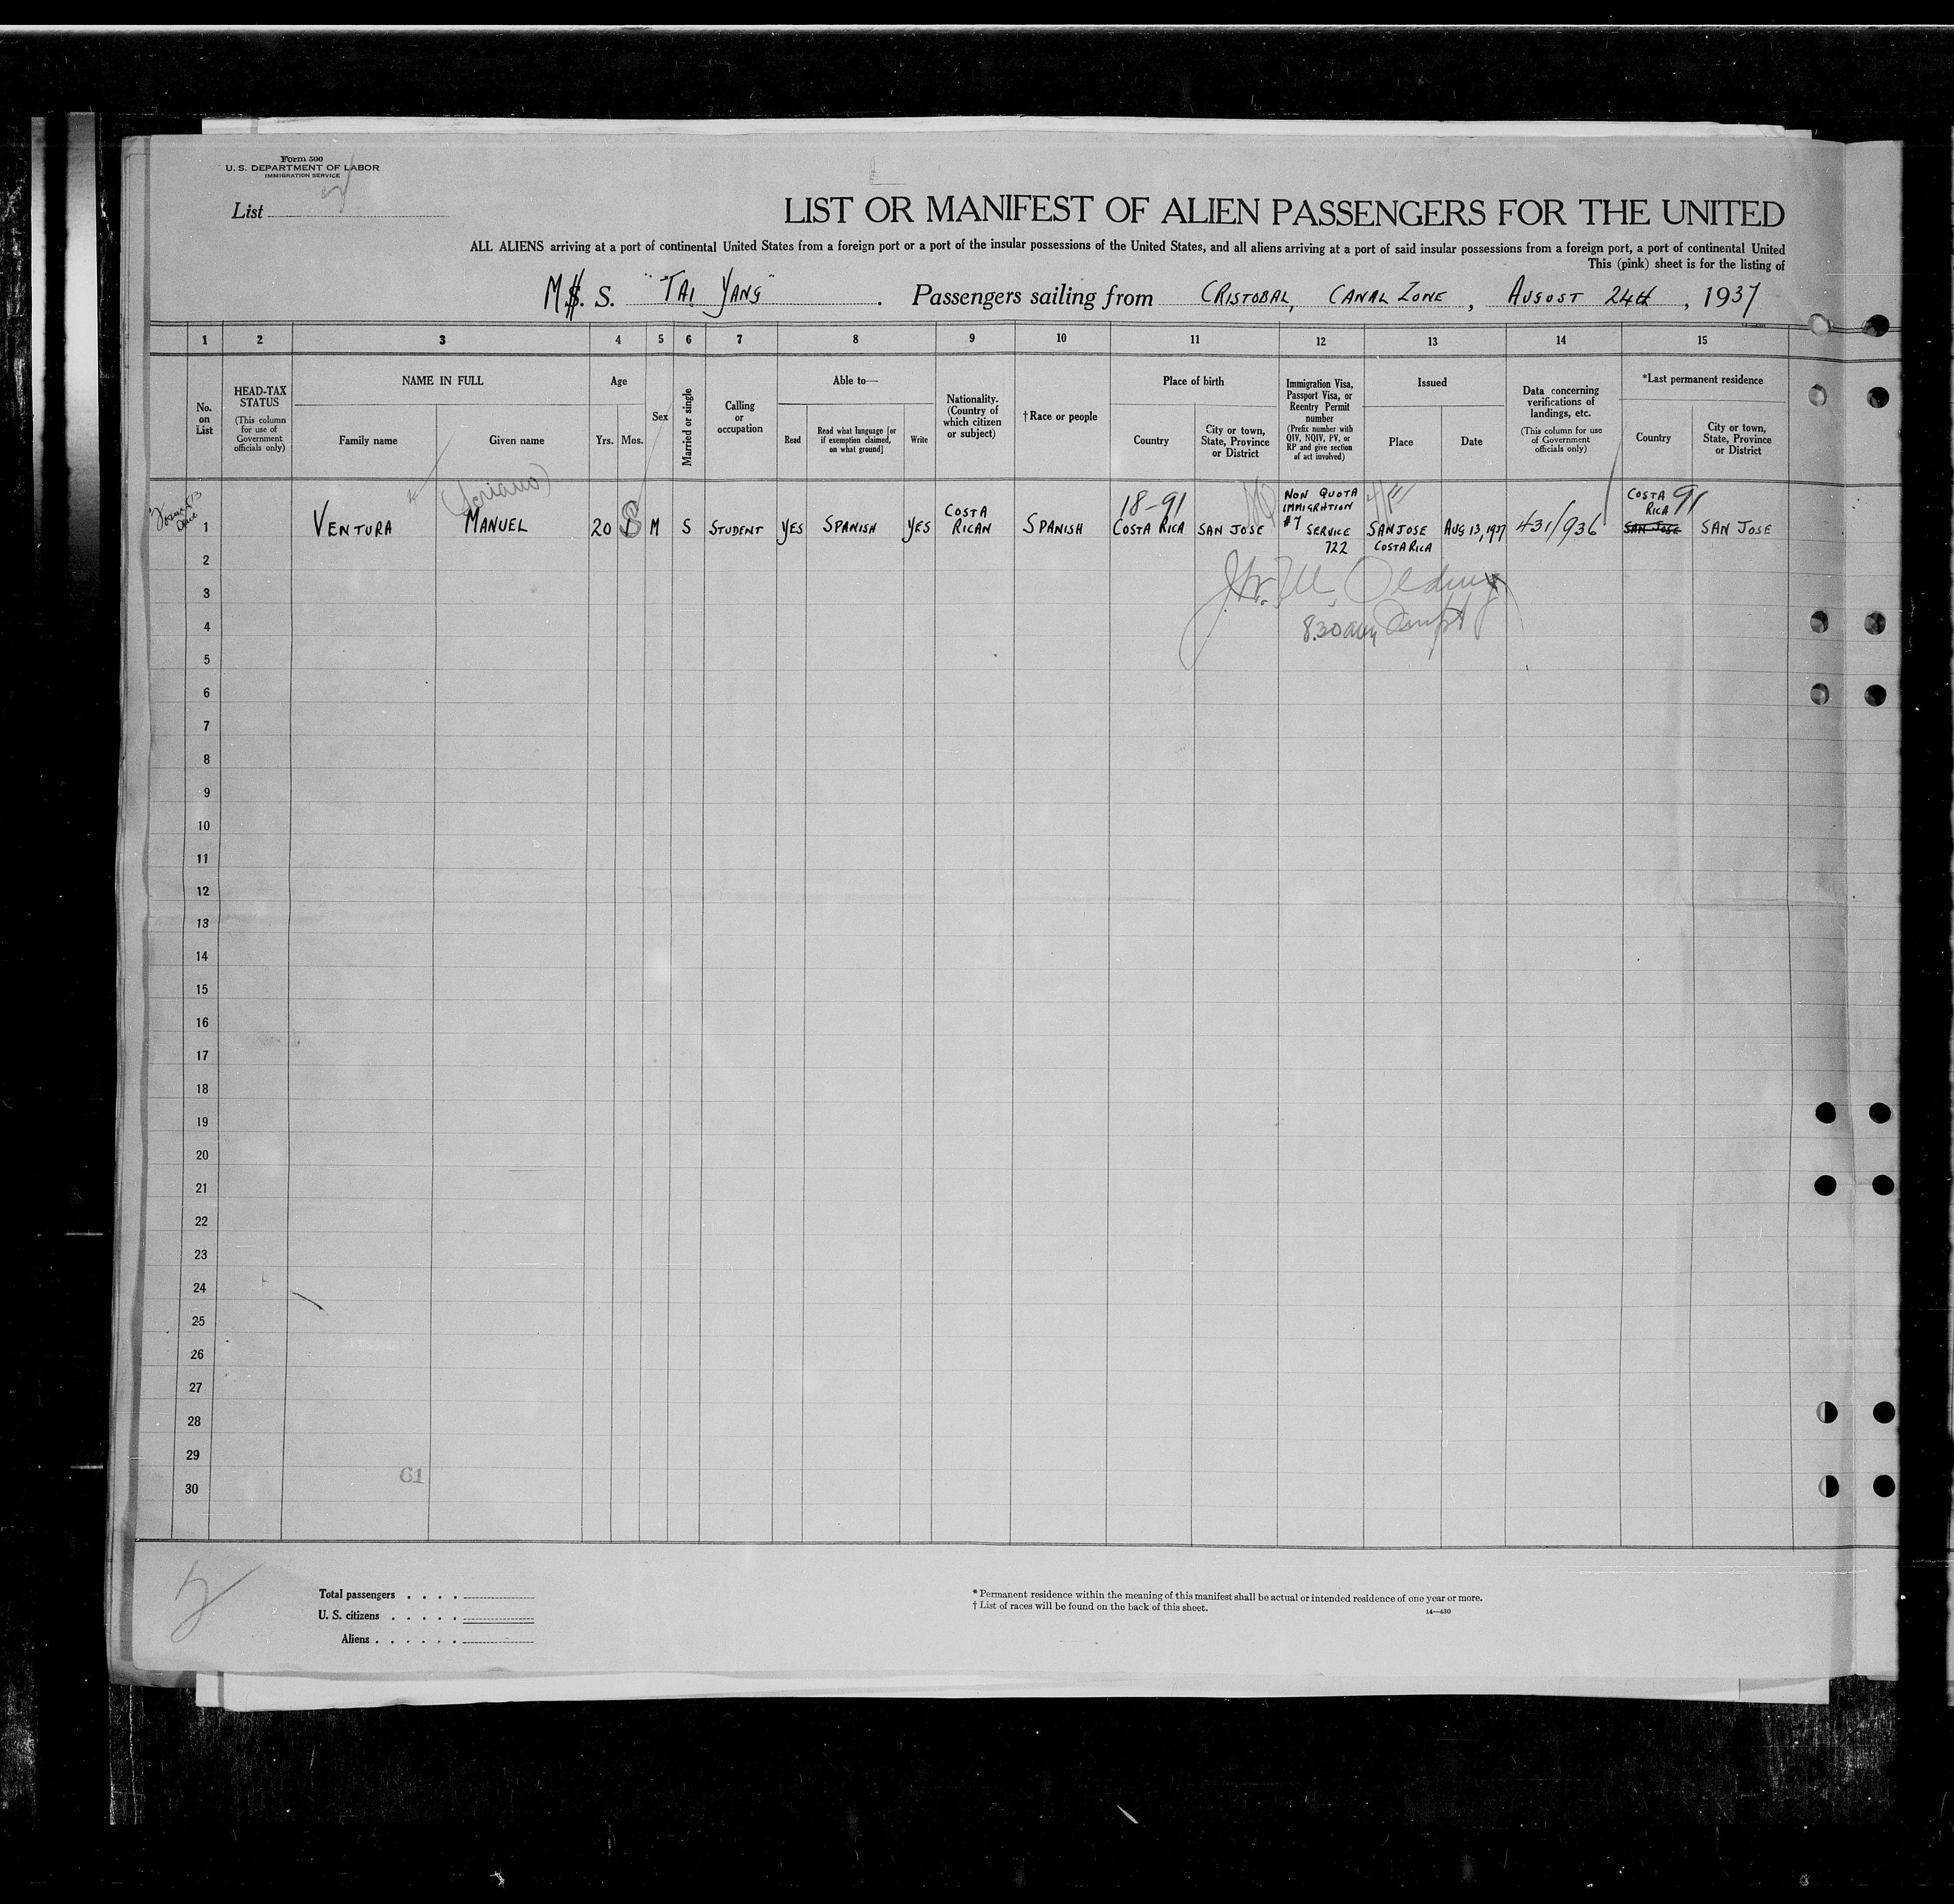 Form 500
U. S. DEPARTMENT OF LABOR
IMMIGRATION SERVICE
List
LIST OR MANIFEST OF ALIEN PASSENGERS FOR THE UNITED
ALL ALIENS arriving at a port of continental United States from a foreign port or a port of the insular possessions of the United States, and all aliens arriving at a port of said insular possessions from a foreign port, a port of continental United
This (pink) sheet is for the listing of
M. S. "TAI YANG" . Passengers sailing from CRISTOBAL, CANAL ZONE , AUGUST 24th , 1937
1 2 3 4 5 6 7 8 9 10 11 12 13 14 15
No. on List
HEAD-TAX STATUS
(This column for use of Government officials only)
NAME IN FULL
Family name
Given name
Age
Yrs. Mos.
Sex
Married or single
Calling or occupation
Able to—
Read
Read what language [or if exemption claimed, on what ground]
Write
Nationality. (Country of which citizen or subject)
†Race or people
Place of birth
Country
City or town, State, Province or District
Immigration Visa, Passport Visa, or Reentry Permit number
(Prefix number with QIV, NQIV, PV, or RP and give section of act involved)
Issued
Place
Date
Data concerning verifications of landings, etc.
(This column for use of Government officials only)
*Last permanent residence
Country
City or town, State, Province or District
(Soriano)
18-91
NON QUOTA
IMMIGRATION
#7 SERVICE
722
COSTA RICA 91
1 VENTURA MANUEL 20 8 M S STUDENT YES SPANISH YES COSTA RICAN SPANISH COSTA RICA SAN JOSE SAN JOSE COSTA RICA AUG 13, 1937 431/936 SAN JOSE SAN JOSE
2
3
4
8.30am
5
6
7
8
9
10
11
12
13
14
15
16
17
18
19
20
21
22
23
24
25
26
27
28
29
61
30
Total passengers . . . .
U. S. citizens . . . . .
Aliens . . . . . .
* Permanent residence within the meaning of this manifest shall be actual or intended residence of one year or more.
† List of races will be found on the back of this sheet.
14—430